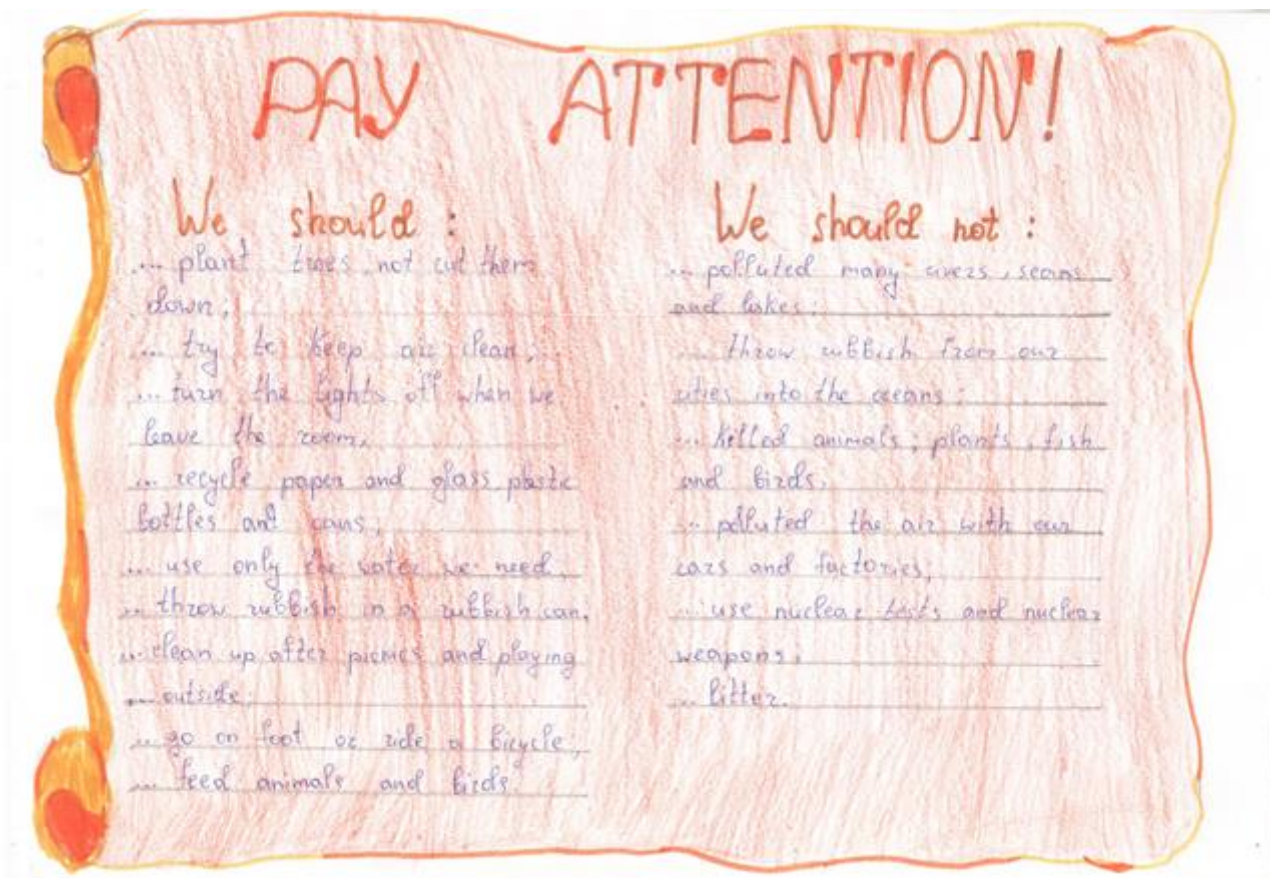 PAY ATTENTION!
We should :
... plant trees not cut them
down;
... try to keep air clean;
... turn the lights off when we
leave the room,
... recycle paper and glass plastic
bottles ant cans;
... use only the water we need,
... throw rubbish in a rubbish can.
... clean up after picnics and playing
... outside;
... go on foot or ride a bicycle;
... feed animals and birds.
We should not :
... polluted many rivers, seans
and lakes;
... throw rubbish from our
cities into the oceans;
... killed animals; plants, fish
and birds,
... polluted the air with our
cars and factories;
... use nuclear tests and nuclear
weapons;
... litter.